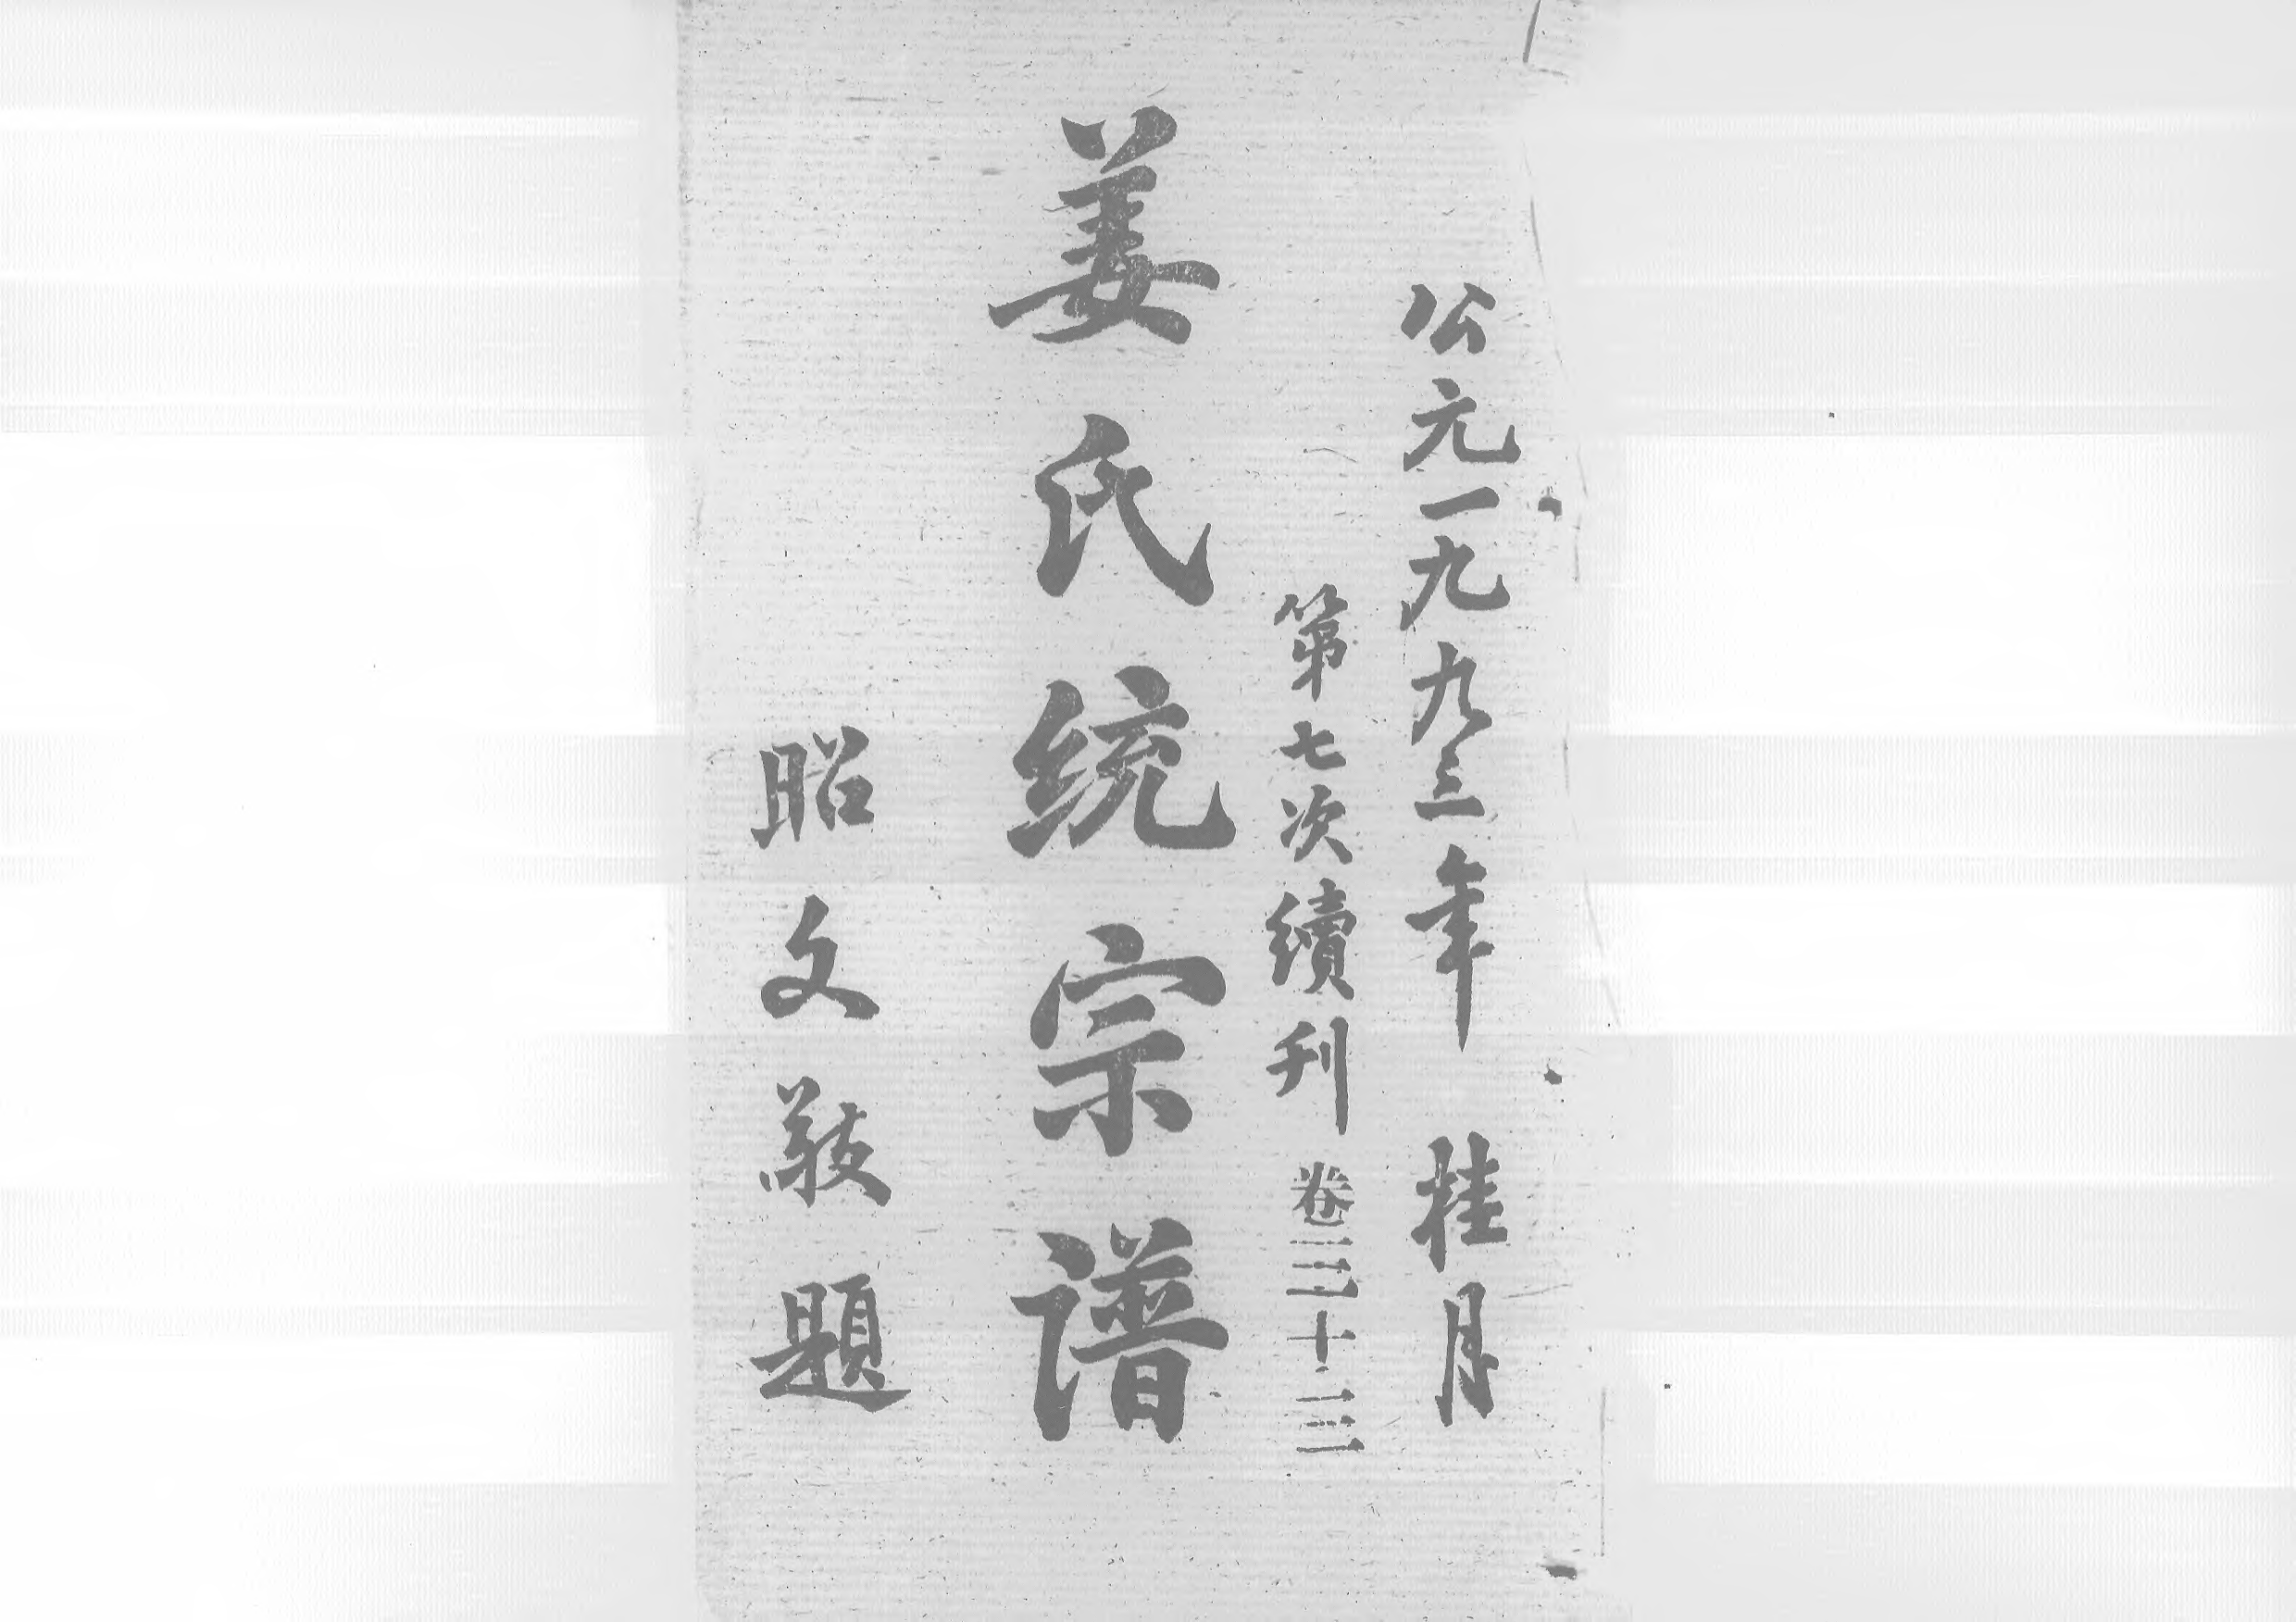 公元一九九三年 桂月
第七次續刊 卷三十三
姜氏统宗谱
昭文敬題